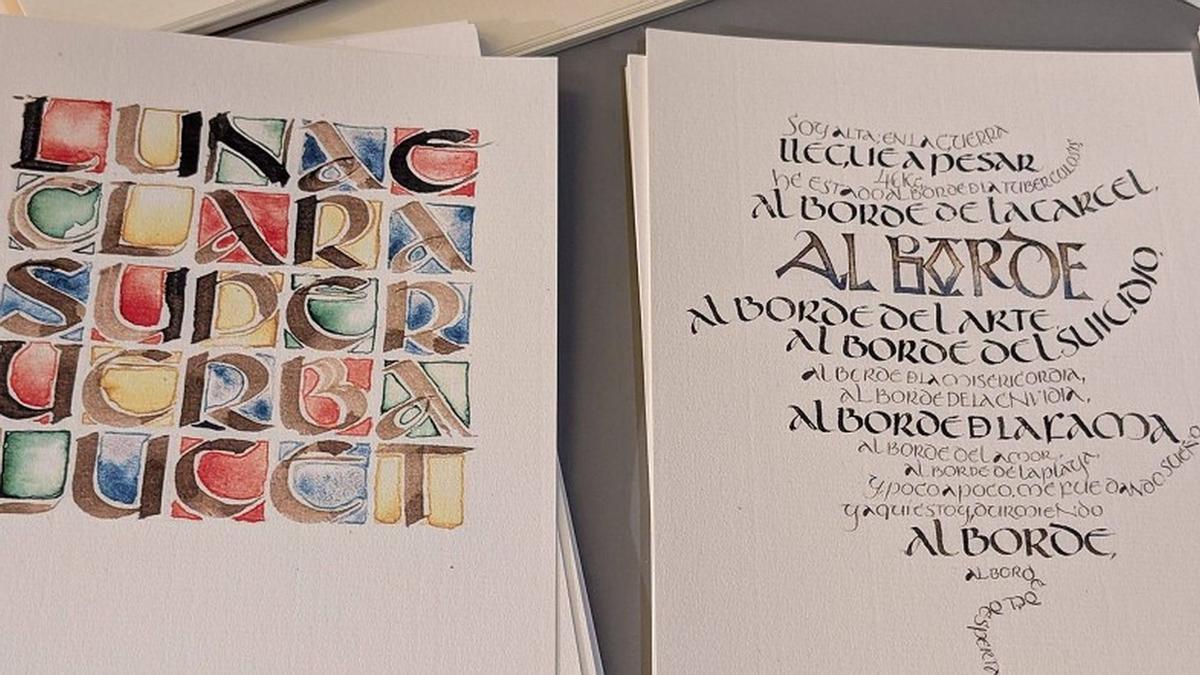 LUNAE
CLARA
SUPER
UERBA
LUCET
SOY ALTA; EN LA GUERRA
LLEGUE A PESAR
40KGS.
HE ESTADO AL BORDE DE LA TUBERCULOSIS,
AL BORDE DE LA CARCEL,
AL BORDE
AL BORDE DEL ARTE,
AL BORDE DEL SUICIDIO,
AL BORDE DE LA MISERICORDIA,
AL BORDE DE LA ENVIDIA,
AL BORDE DE LA FAMA
AL BORDE DEL AMOR,
AL BORDE DE LA PLAYA,
Y, POCO A POCO, ME FUE DANDO SUEÑO
Y AQUI ESTOY, DURMIENDO
AL BORDE,
AL BORDE
DE DESPERTA